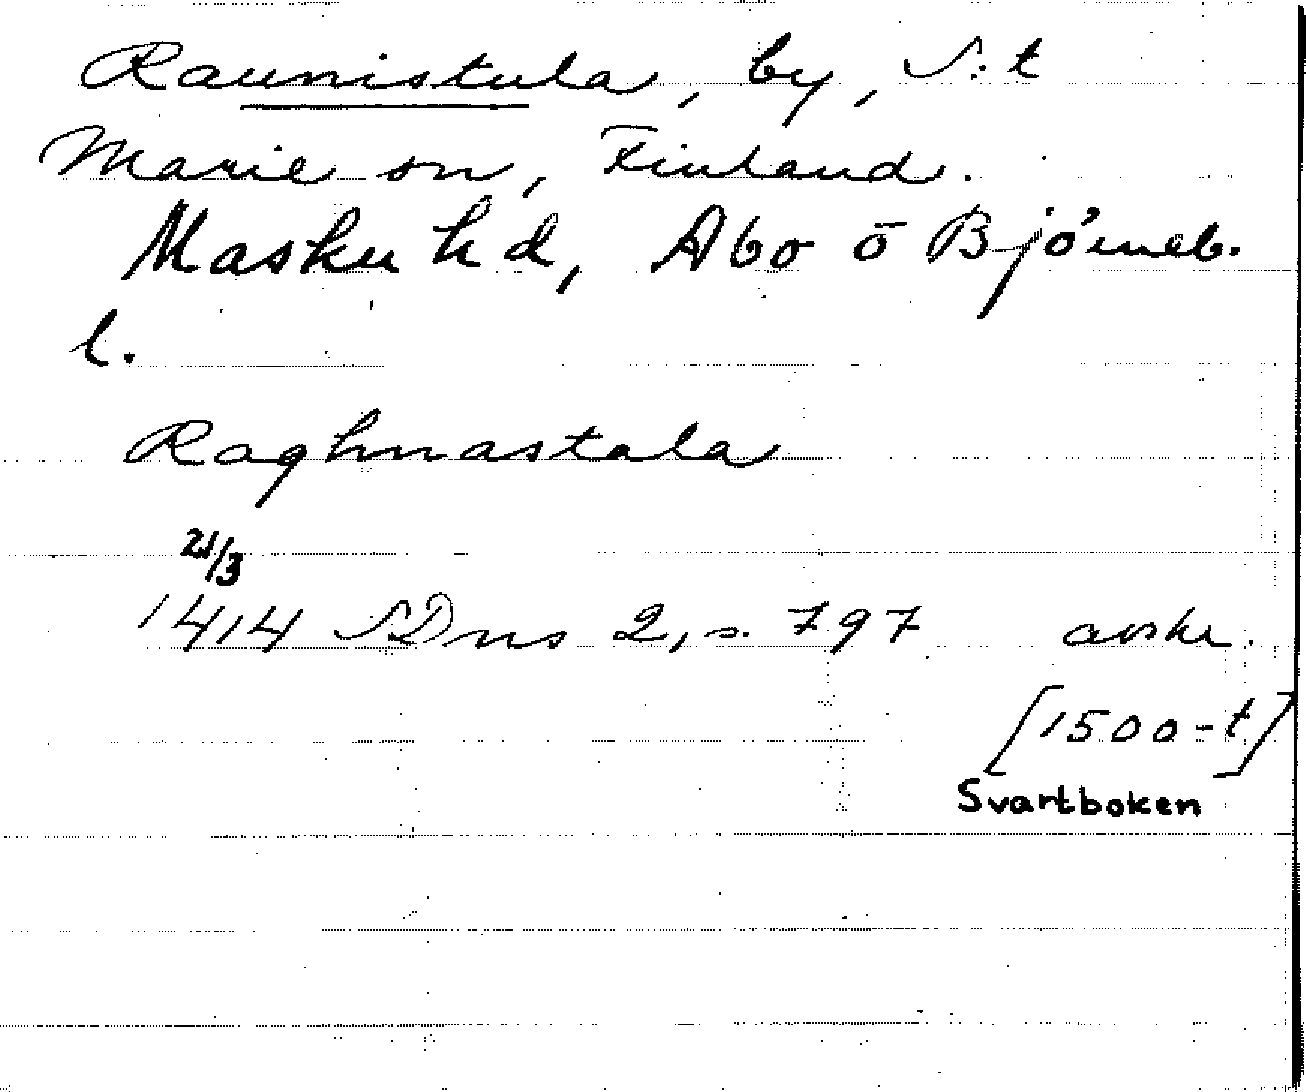 Raunistula, by, S:t
Marie sn, Finland.
Masku hd, Åbo o Björneb.
l.
Raghnastala
21/3
1414 SDns 2, s. 797 avskr.
[1500-t]
Svartboken